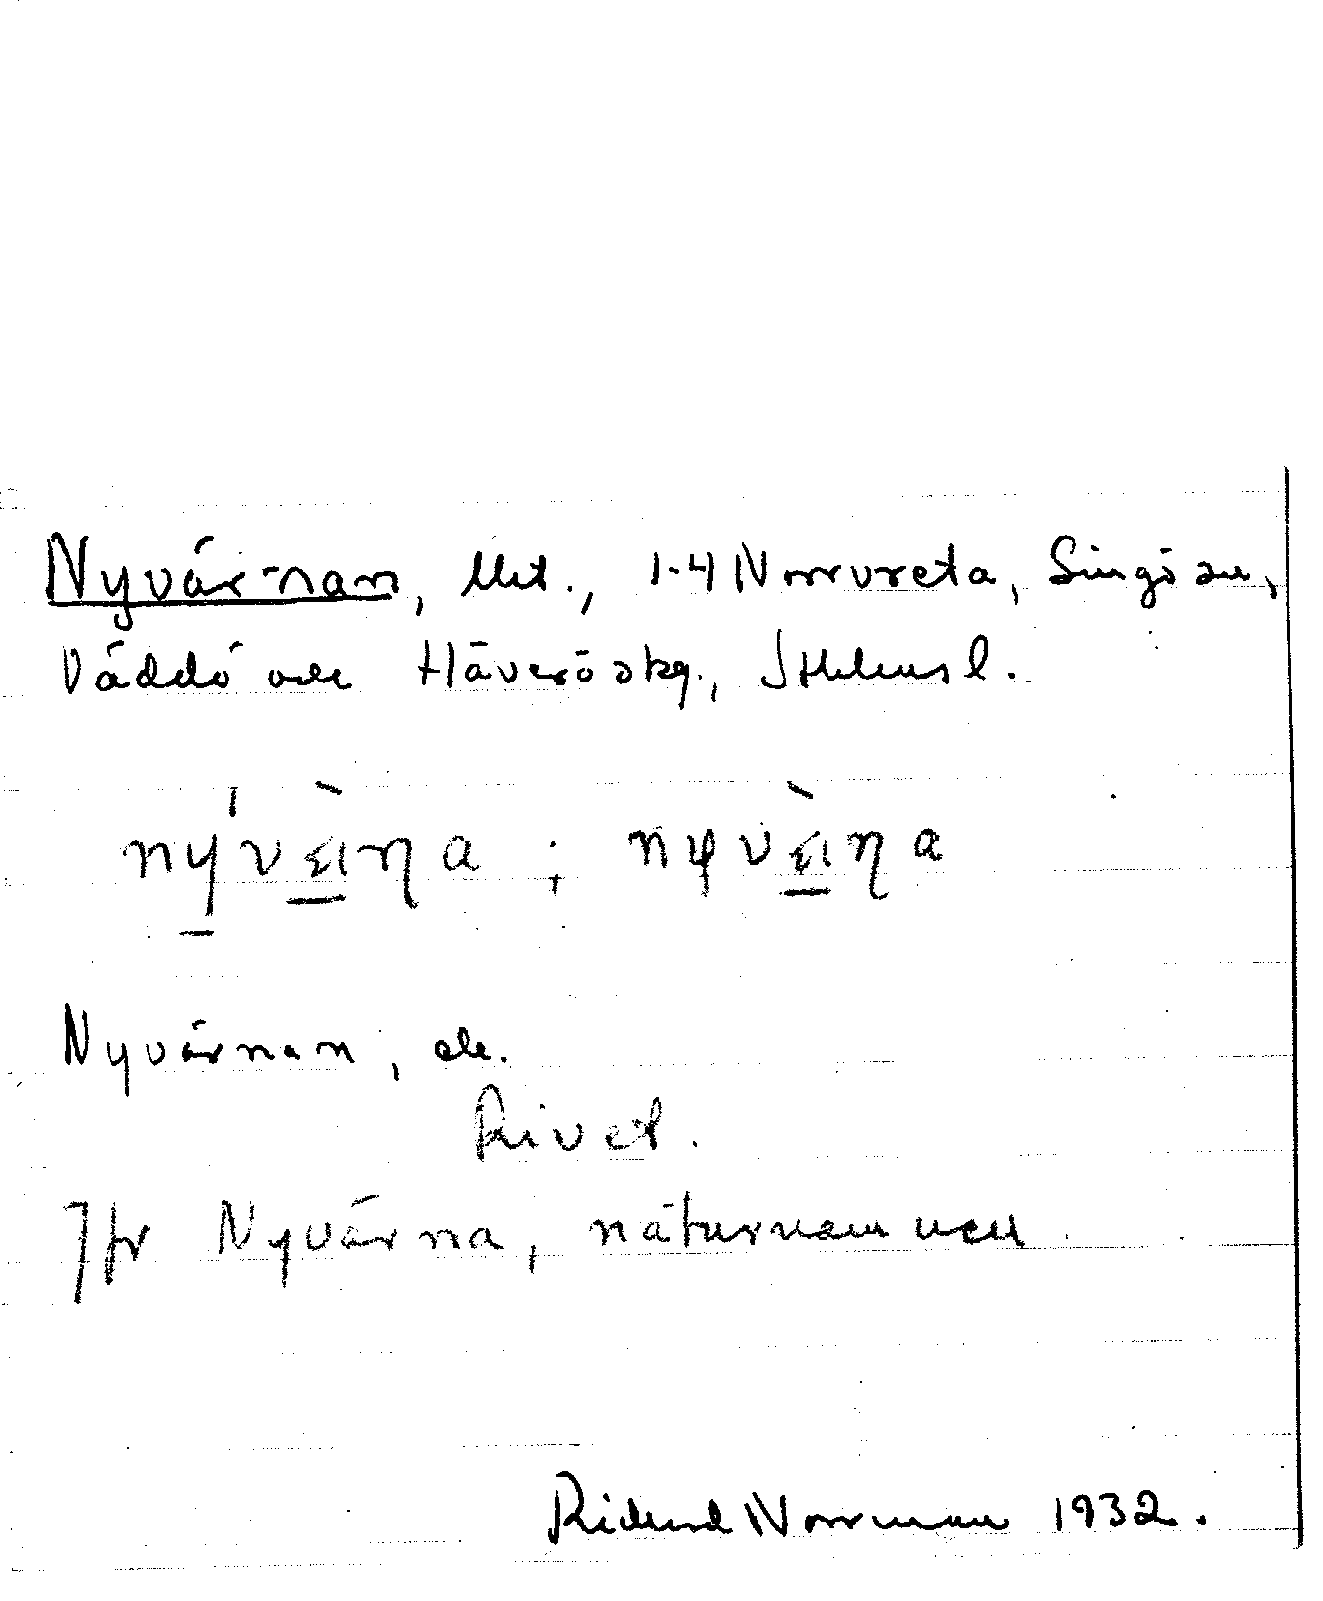 Nyvärnan, Utet., 1-4 Norrvreta, Singö sn,
Väddö och Häverö skg., Sthlms l.
Nyvärnan, ele.
Rivet.
Jfr Nyvärna, naturnamnen
Rickard Norrman 1932.